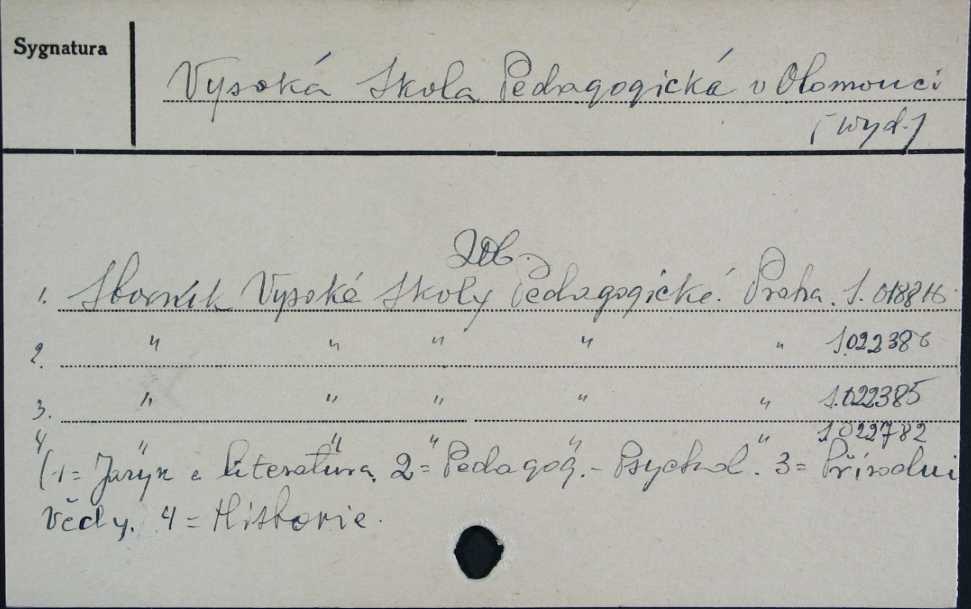 Sygnatura
Vysoká Skola Pedagogická v Olomouci
[wyd.]
Zob.
1. Sborník Vysoké Skoly Pedagogické. Praha. S. 01881b
2. " " " " " S.022386
3. " " " " " S.022385
4 " " " " " S.022782
(1= Jazyk a literatura. 2= Pedagog. - Psychol. 3= Přírodni
vědy. 4 = Historie.